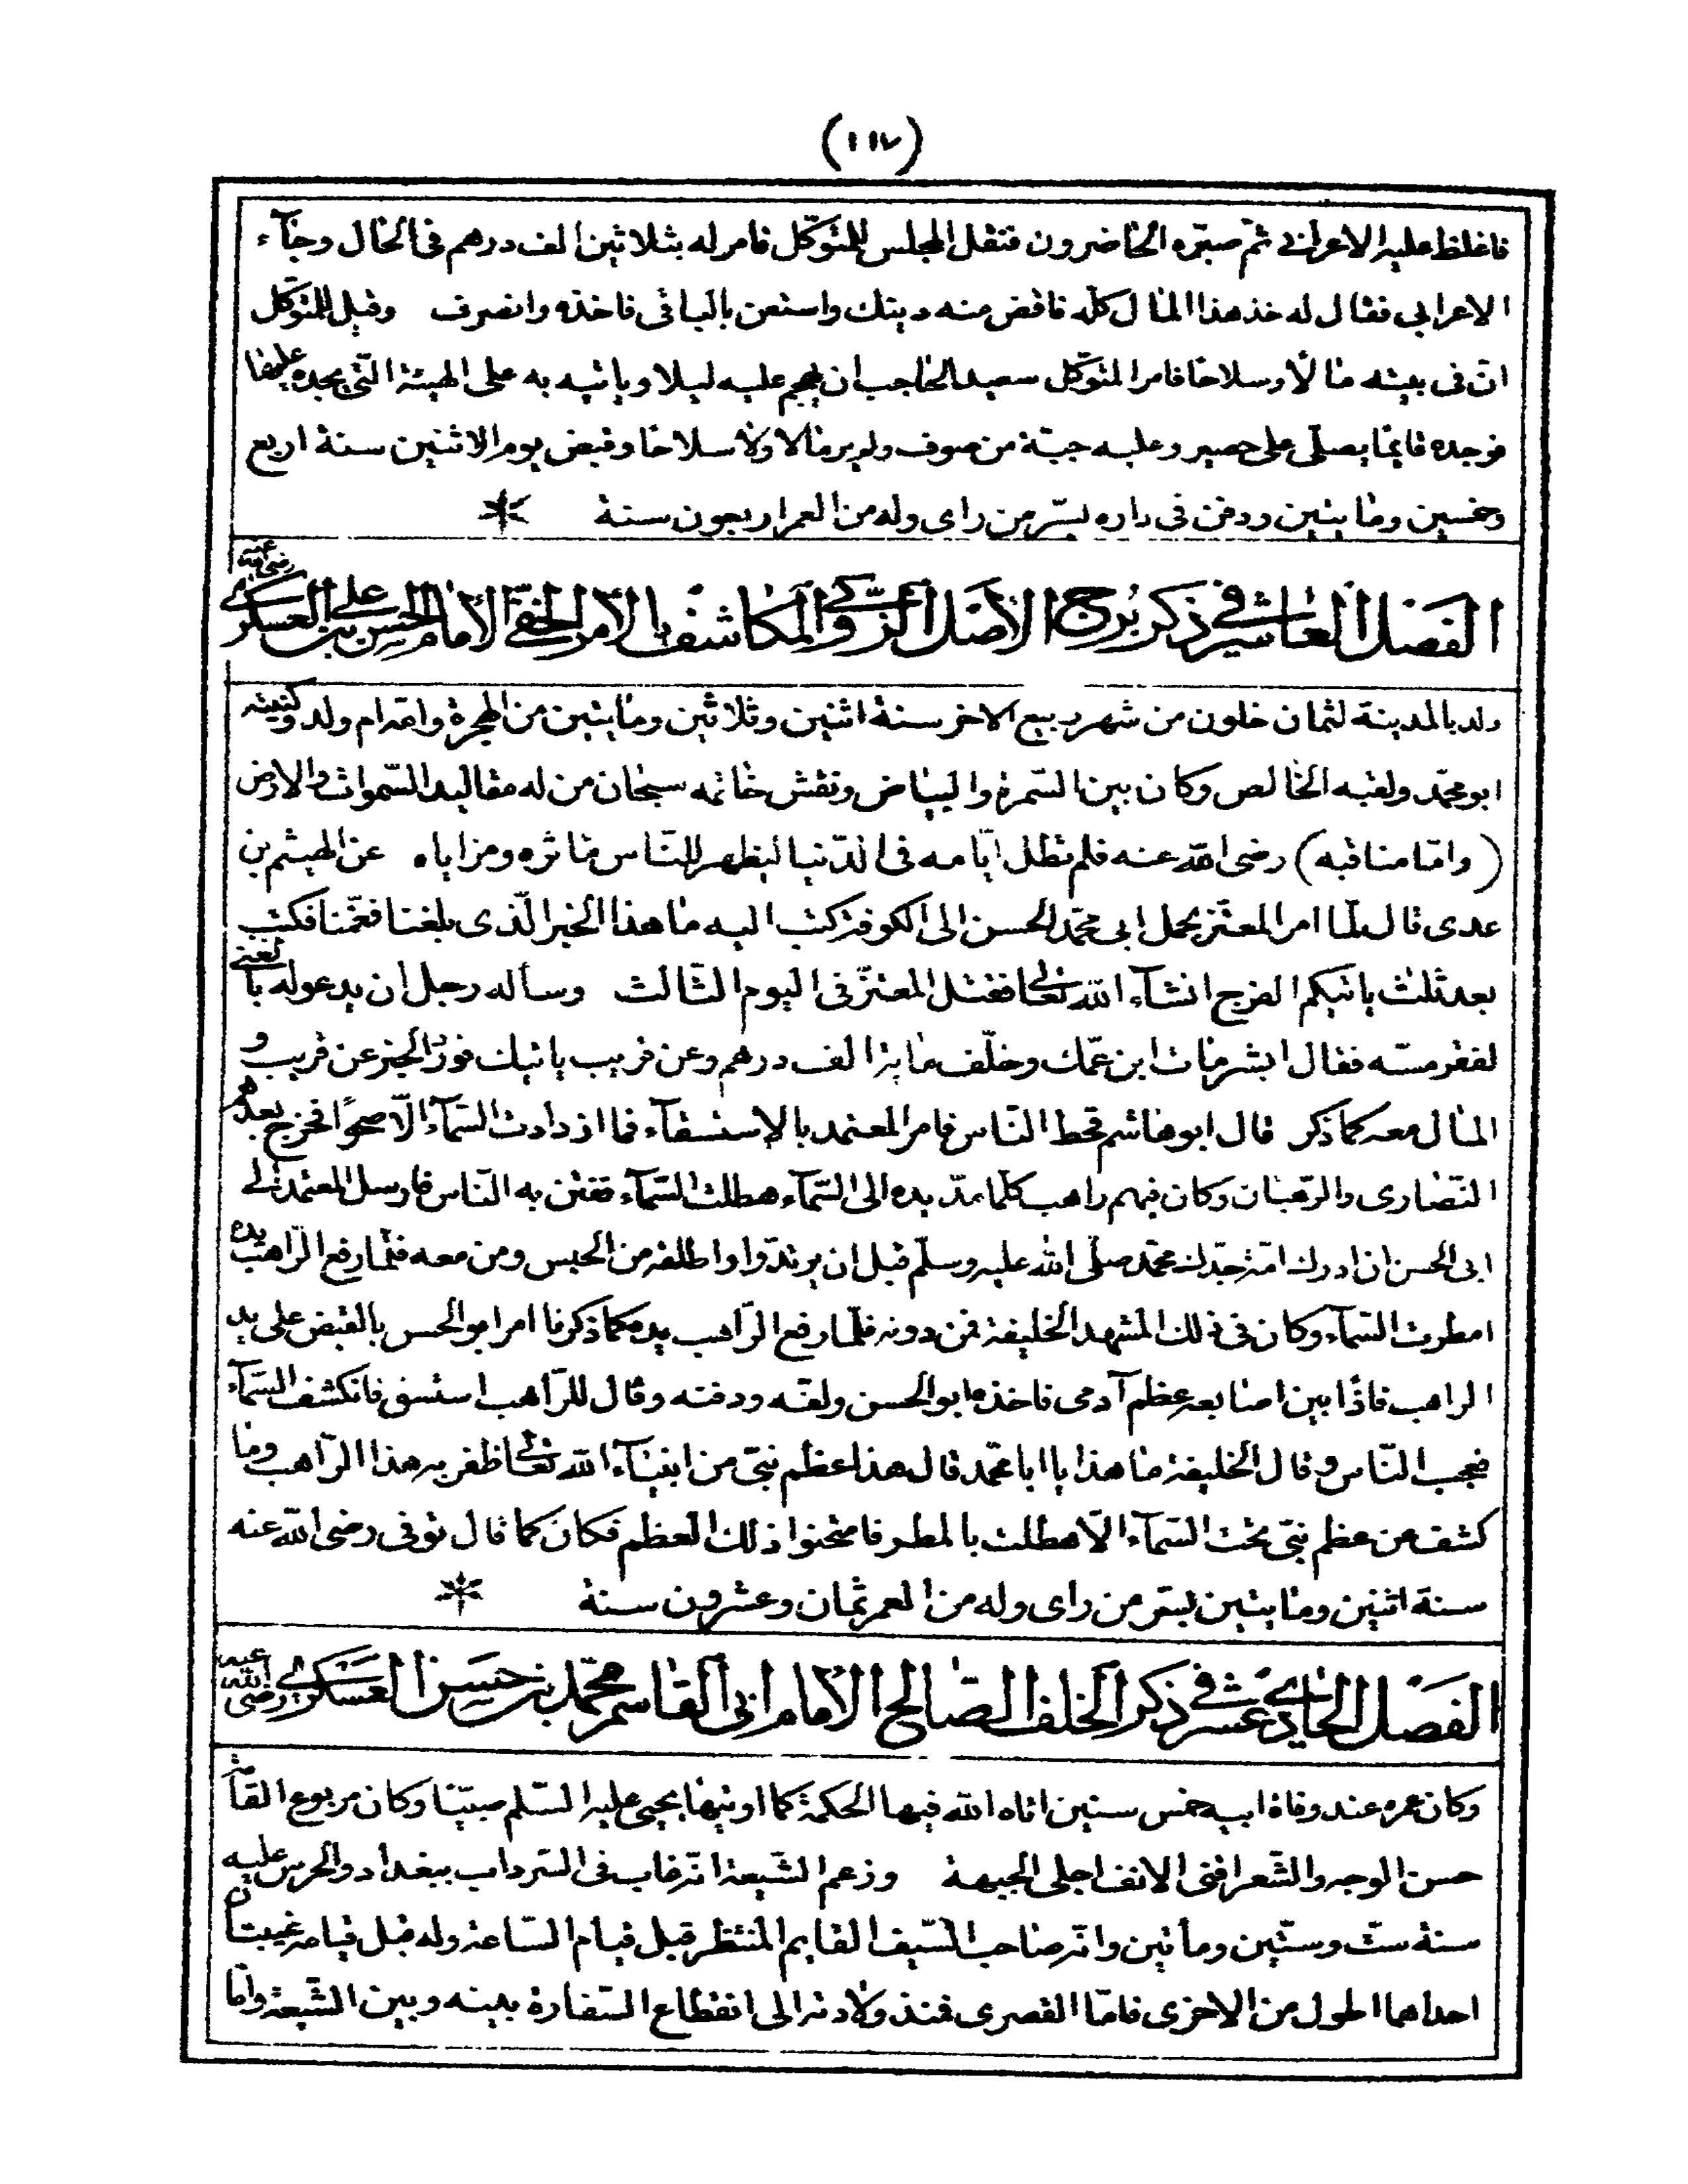 (١١٧)
فاغلظ عليه الاعرابى ثم صبّره الحاضرون فنقل المجلس للمتوكّل فامر له بثلاثين الف درهم فى الحال وجآء
الاعرابى فقال له خذ هذا المال كلّه فاقض منه دينك واستعن بالباقى فاخذه وانصرف وقيل للمتوكّل
انّ فى بيته مالا وسلاحا فامر المتوكّل سعيد الحاجب ان يهجم عليه ليلا وياتيه به على الهيئة التى يجده عليها
فوجده قايما يصلّى على حصير وعليه جبّة من صوف ولم ير مالا ولا سلاحا وقبض يوم الاثنين سنة اربع
وخمسين ومايتين ودفن فى داره بسرّ من راى وله من العمر اربعون سنة
الفصل العاشر فى ذكر برج الاصل الزكى والمكاشف بالامر الخفى الامام الحسن بن على العسكرى رضى الله عنه
ولد بالمدينة لثمان خلون من شهر ربيع الاخر سنة اثنين وثلاثين ومايتين من الهجرة وامّه ام ولد وكنيته
ابو محمّد ولقبه الخالص وكان بين السّمرة والبياض ونقش خاتمه سبحان من له مقاليد السّموات والارض
(وامّا مناقبه) رضى الله عنه فلم تطل ايّامه فى الدّنيا ليظهر للنّاس ماثره ومزاياه عن الهيثم بن
عدى قال لمّا امر المعتزّ بحمل ابى محمّد الحسن الى الكوفة كتب اليه ما هذا الخبر الّذى بلغنا فغمّنا فكتب
بعد ثلث ياتيكم الفرج انشآء الله تعالى فقتل المعتزّ فى اليوم الثّالث وساله رجل ان يدعو له بالغنى
لفقر مسّه فقال ابشر مات ابن عمّك وخلّف ماية الف درهم وعن قريب ياتيك فورد الخبر عن قريب و
المال معه كما ذكر قال ابو هاشم قحط النّاس فامر المعتمد بالاستسقآء فما ازدادت السّمآء الّا صحوًا فخرج بعدهم
النّصارى والرّهبان وكان فيهم راهب كلّما مدّ يده الى السّمآء هطلت السّمآء ففتن به النّاس فارسل المعتمد الى
ابى الحسن ان ادرك امّة جدّك محمّد صلّى الله عليه وسلّم قبل ان يرتدّوا واطلقه من الحبس ومن معه فلمّا رفع الرّاهب يده
امطرت السّمآء وكان فى ذلك المشهد الخليفة فمن دونه فلمّا رفع الرّاهب يده كما ذكرنا امر ابو الحسن بالقبض على يد
الراهب فاذا بين اصابعه عظم آدمى فاخذه ابو الحسن ولفّه ودفنه وقال للرّاهب استسق فانكشف السّمآء
فعجب النّاس وقال الخليفة ما هذا يا ابا محمّد قال هذا عظم نبىّ من انبيآء الله تعالى ظفر به هذا الرّاهب وما
كشف عن عظم نبىّ تحت السّمآء الّا هطلت بالمطر فامتحنوا ذلك العظم فكان كما قال توفى رضى الله عنه
سنة اثنين ومايتين بسرّ من راى وله من العمر ثمان وعشرون سنة
الفصل الحادى عشر فى ذكر الخلف الصالح الامام ابى القاسم محمّد بن حسن العسكرى رضى الله عنه
وكان عمره عند وفاة ابيه خمس سنين اتاه الله فيها الحكمة كما اوتيها يحيى عليه السّلم صبيّا وكان مربوع القامة
حسن الوجه والشّعر اقنى الانف اجلى الجبهة وزعم الشّيعة انّه غاب فى السّرداب ببغداد والحرس عليه
سنة ستّ وستّين ومأتين وانّه صاحب السّيف القايم المنتظر قبل قيام السّاعة وله قبل قيامه غيبتان
احداهما اطول من الاخرى فامّا القصرى فمنذ ولادته الى انقطاع السّفارة بينه وبين الشّيعة وامّا